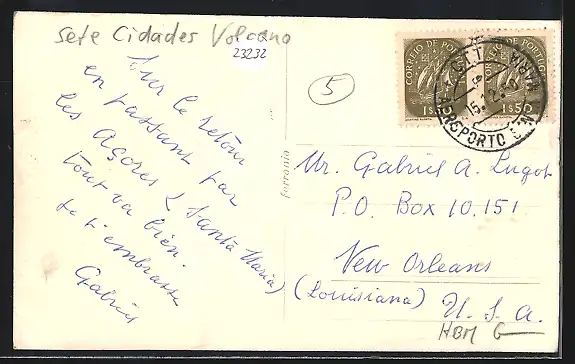 Sete Cidades Volcano
23232
Sur le retour
en passant par
les Açores (Santa Maria)
tout va bien.
Je t'embrasse
Gabriel
5
ferrania
CORREIO DE PORTUGAL
1$50
CORREIO DE PORTUGAL
1$50
C.T.T.
AEROPORTO S. MARIA
Mr. Gabriel A. Lugot
P.O. Box 10.151
New Orleans
(Louisiana) U.S.A.
HBM G